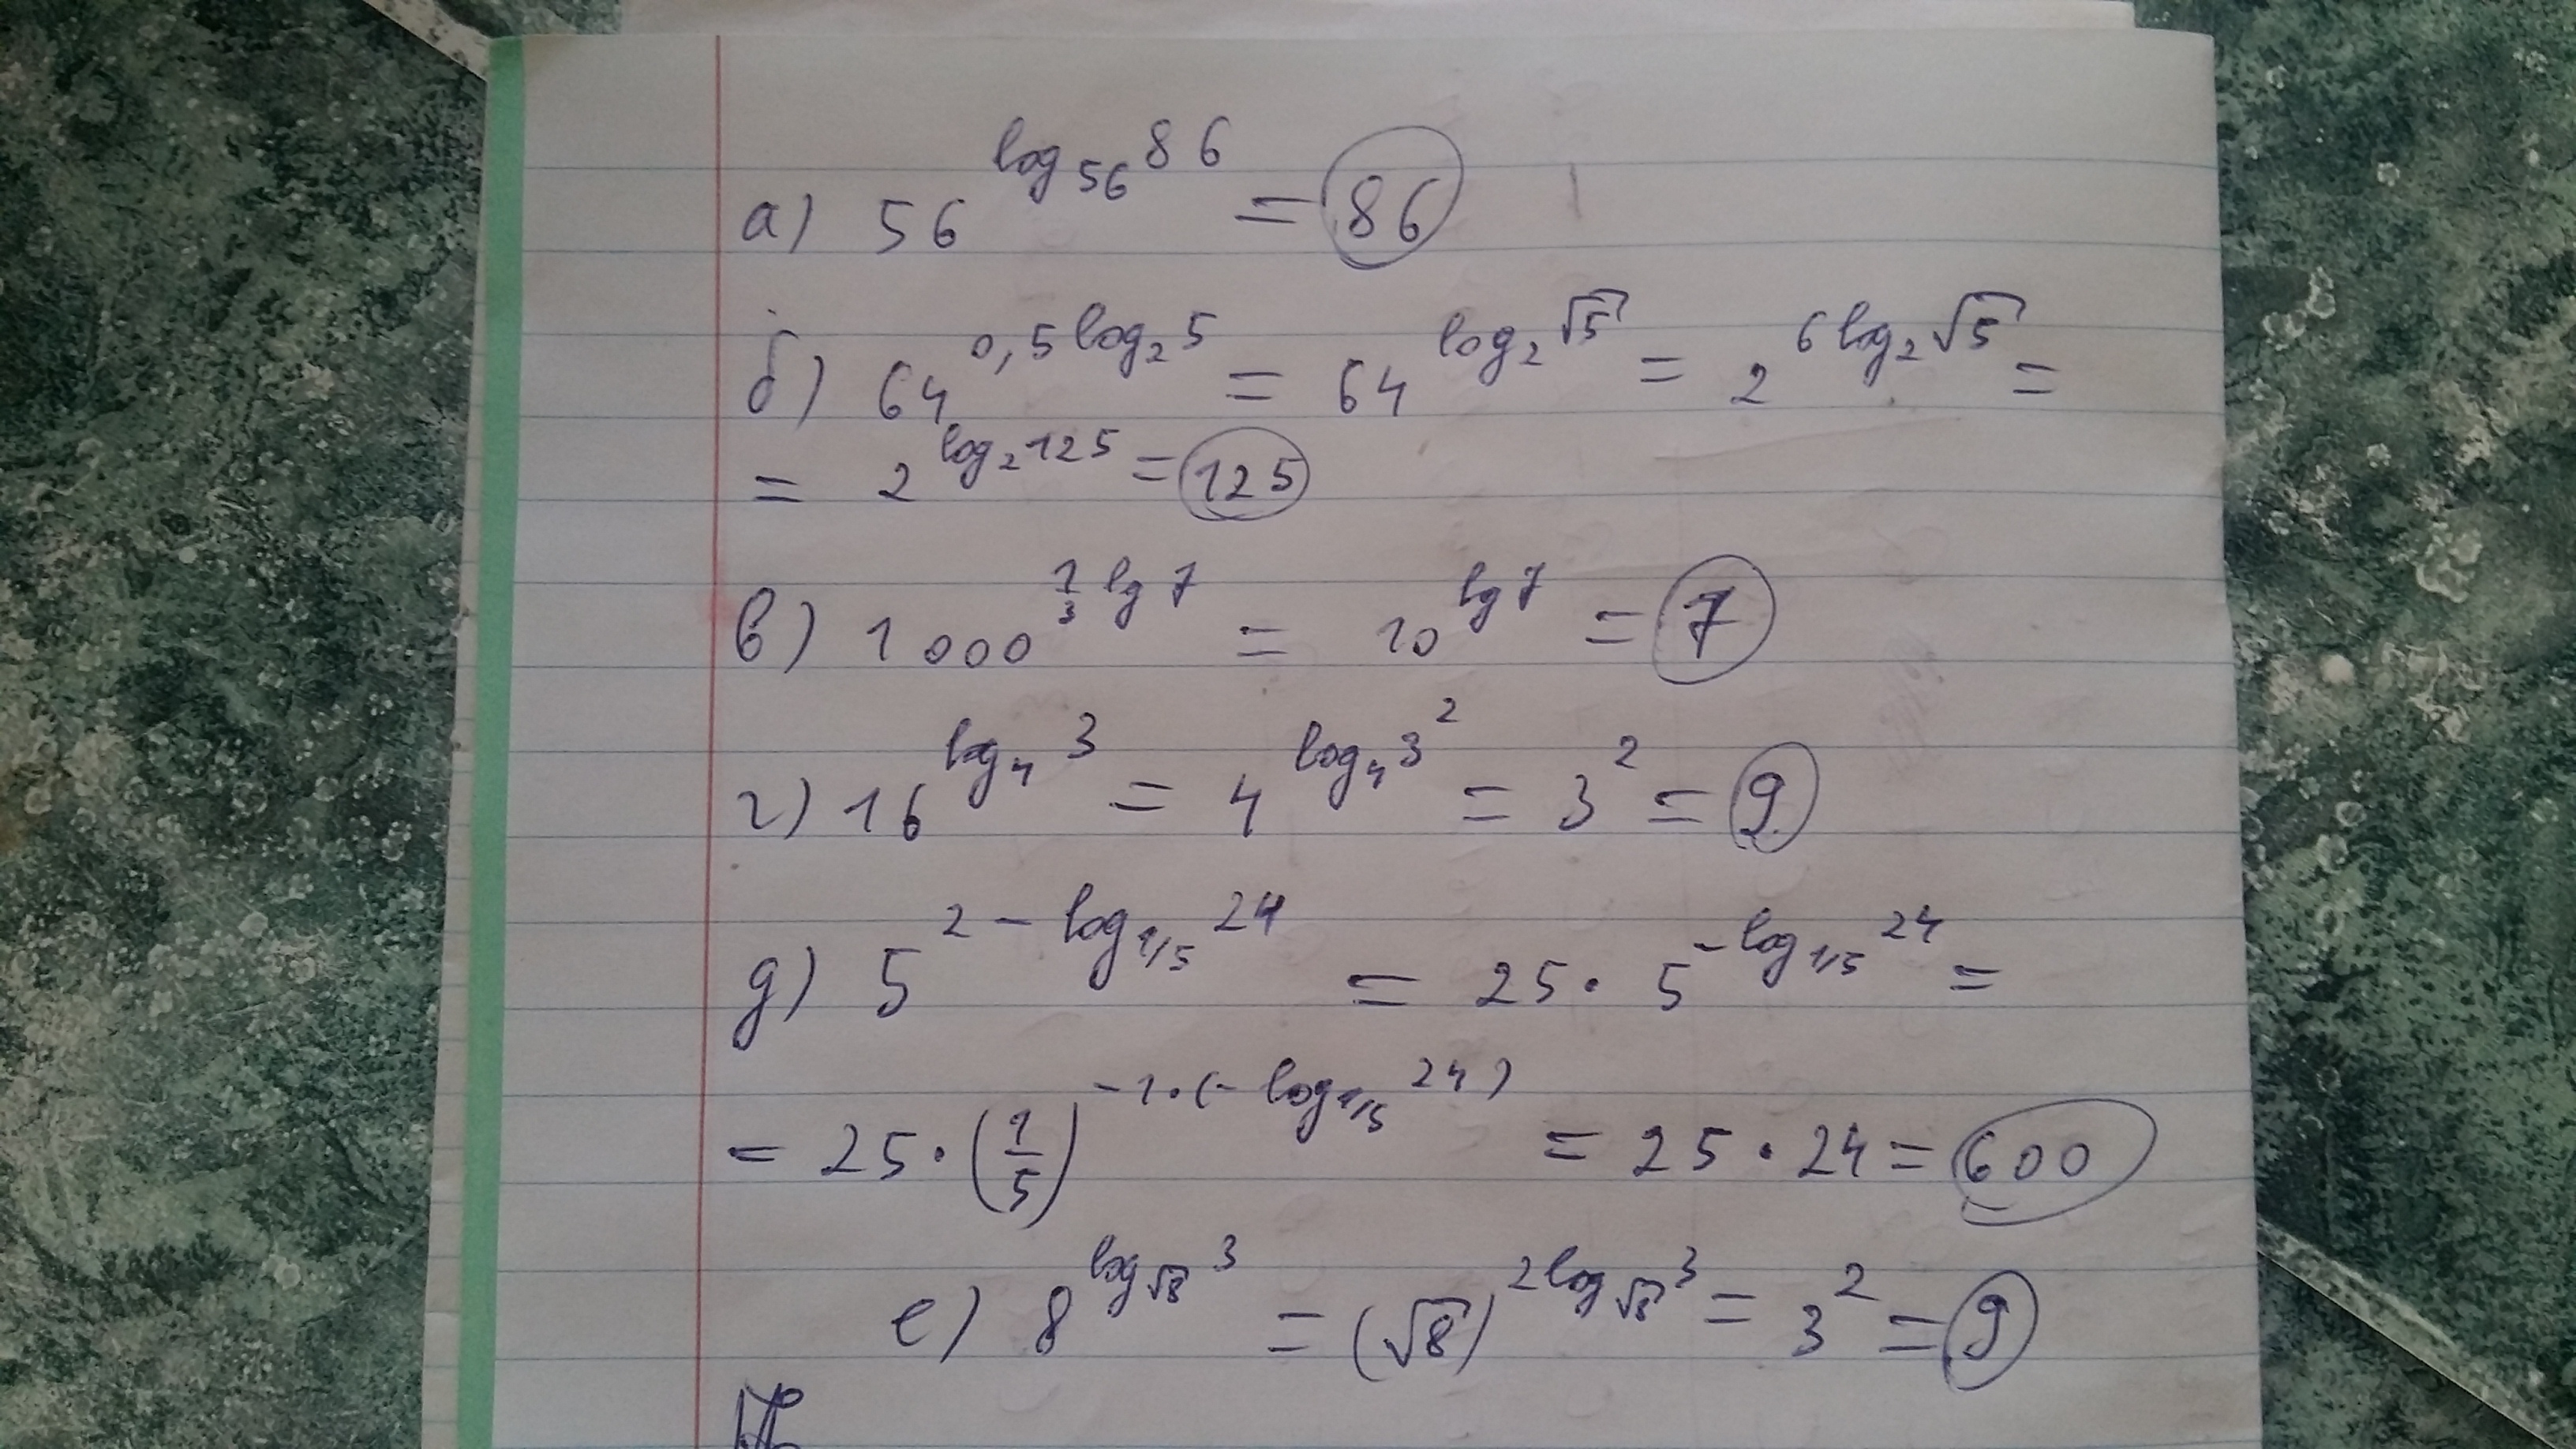 а) 56^{log_{56} 86} = 86
б) 64^{0,5 log_2 5} = 64^{log_2 √5} = 2^{6 log_2 √5} =
= 2^{log_2 125} = 125
в) 1000^{1/3 lg 7} = 10^{lg 7} = 7
г) 16^{log_4 3} = 4^{log_4 3^2} = 3^2 = 9
д) 5^{2 - log_{1/5} 24} = 25 · 5^{- log_{1/5} 24} =
= 25 · (1/5)^{-1·(- log_{1/5} 24)} = 25 · 24 = 600
е) 8^{log_{√8} 3} = (√8)^{2 log_{√8} 3} = 3^2 = 9